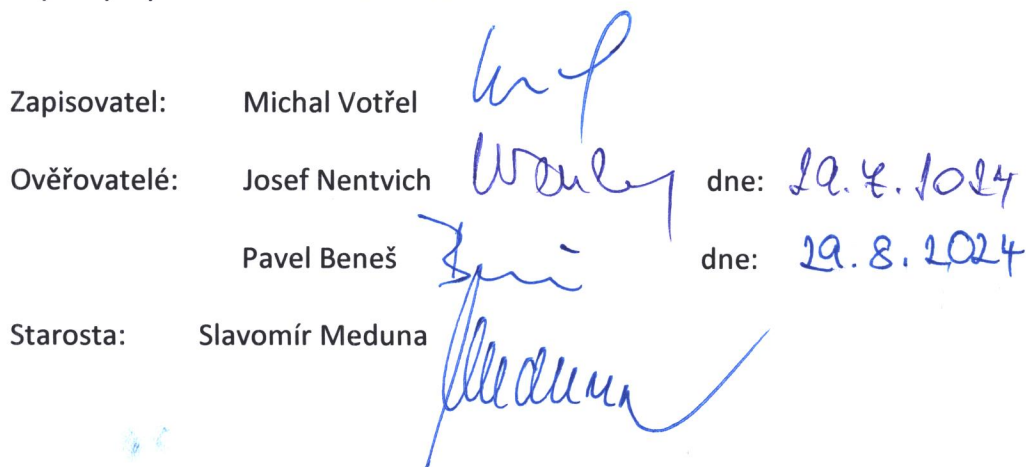 Zapisovatel: Michal Votřel
Ověřovatelé: Josef Nentvich dne: 29.7.2024
Pavel Beneš dne: 29.8.2024
Starosta: Slavomír Meduna